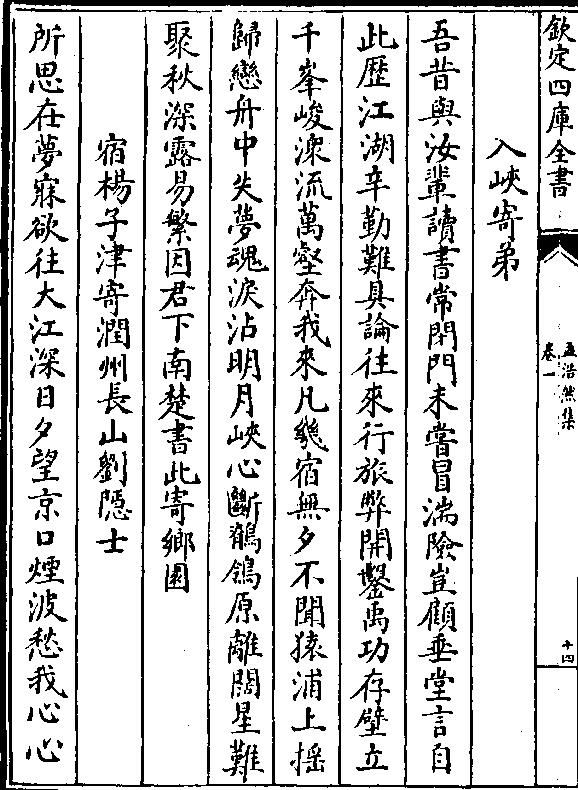 欽定四庫全書
孟浩然集
卷一
十四
入峽寄弟
吾昔與汝輩讀書常閉門未嘗冒湍險豈顧垂堂言自
此歴江湖辛勤難具論往來行旅弊開鑿禹功存壁立
千峯峻潨流萬壑奔我來凡幾宿無夕不聞猿浦上揺
歸戀舟中失夢魂淚沾明月峽心斷鶺鴒原離闊星難
聚秋深露易繁因君下南楚書此寄鄉園
宿楊子津寄潤州長山劉隱士
所思在夢寐欲往大江深日夕望京口煙波愁我心心